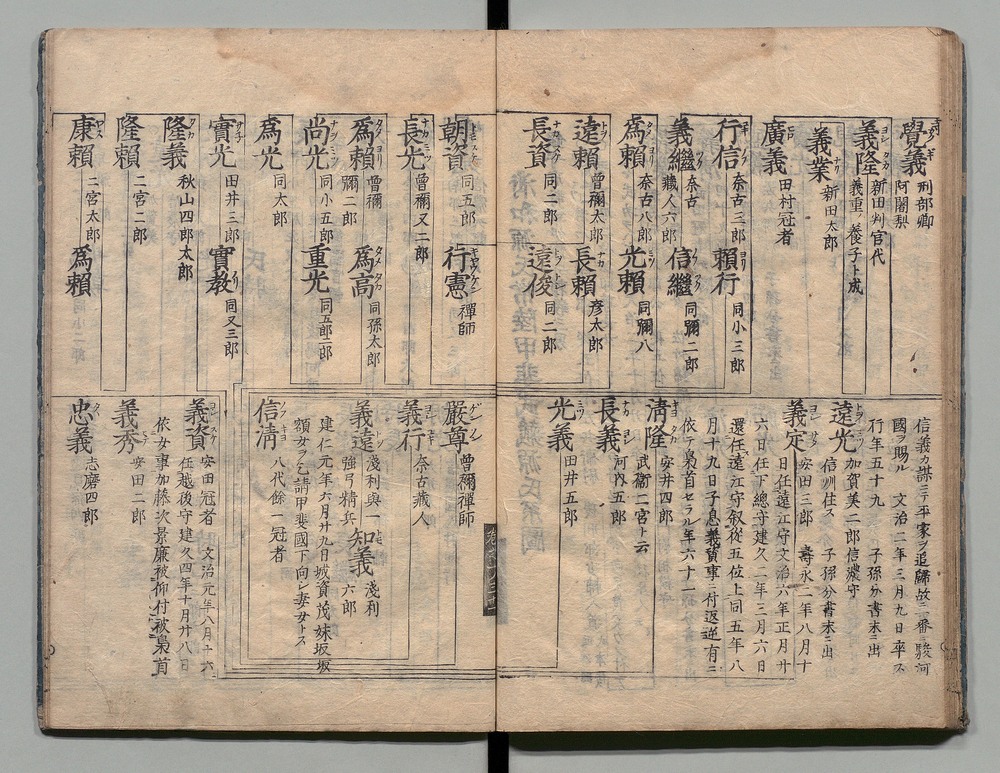 覺義 刑部卿
阿闍梨
義隆 新田判官代
義重ノ養子ト成
義業 新田太郎
廣義 田村冠者
行信 奈古三郎
賴行 同小三郎
義繼 奈古
藏人六郎
信繼 同彌二郎
爲賴 奈古八郎
光賴 同彌八
遠賴 曾禰太郎
長賴 彦太郎
長資 同二郎
遠俊 同二郎
信義カ謀ニテ平家ヲ追歸故ニ番ニ駿河
國ヲ賜ル 文治二年三月九日卒ス
行年五十九 子孫分書末ニ出
遠光 加賀美二郎信濃守
信州住ス 子孫分書末ニ出
義定 安田三郎 壽永二年八月十
日任遠江守文治六年正月廿
六日任下總守建久二年三月六日
還任遠江守叙從五位上同五年八
月十九日子息義資事ニ付返逆有ニ
依テ梟首セラル年六十一
淸隆 安井四郎
武衞二宮ト云
長義 河内五郎
光義 田井五郎
朝資 同五郎
行憲 禪師
長光 曾禰又二郎
爲賴 曾禰
彌二郎
爲高 同孫太郎
尚光 同小五郎
重光 同五郎二郎
爲光 同太郎
實光 田井三郎
實敎 同又三郎
隆義 秋山四郎太郎
隆賴 二宮二郎
康賴 二宮太郎
爲賴
嚴尊 曾禰禪師
義行 奈古藏人
義遠 淺利與一
強弓精兵
知義 淺利
六郎
建仁元年六月廿九日城資茂妹坂坂
額女ヲ乞請甲斐國下向シ妻女トス
信淸 八代餘一冠者
義資 安田冠者 文治元年八月十六
任越後守建久四年十月廿八日
依女事加藤次景廉被仰付被梟首
義秀 安田二郎
忠義 志磨四郎